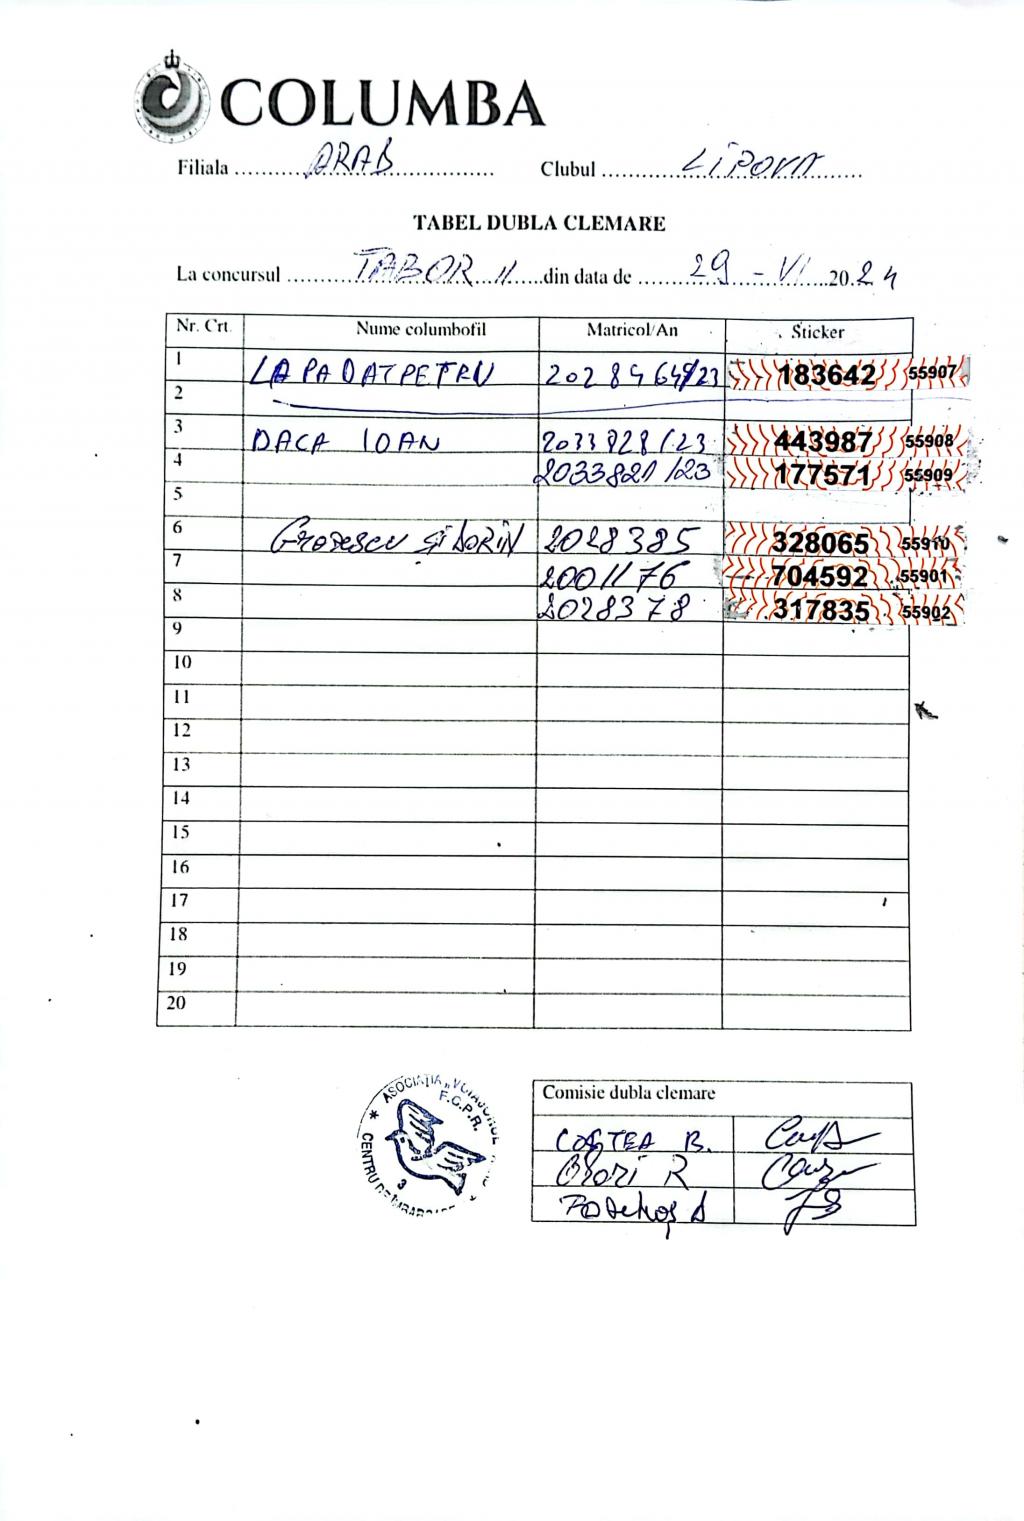 COLUMBA
Filiala ........ARAD........ Clubul ........LIPOVA........
TABEL DUBLA CLEMARE
La concursul ........TABOR II........din data de ........29 - VI........2024
Nr. Crt. Nume columbofil Matricol/An Sticker
1 LAPADAT PETRU 183642 55907
2
3 DACA IOAN 2033828/23 443987 55908
4 2033821/23 177571 55909
5
6 2028385 328065 55910
7 2001176 704592 55901
8 2028378 317835 55902
9
10
11
12
13
14
15
16
17
18
19
20
ASOCIAȚIA „VOIAJORUL
F.C.P.R.
CENTRU DE IMBARCARE
3
Comisie dubla clemare
COSTEA B.
R
A